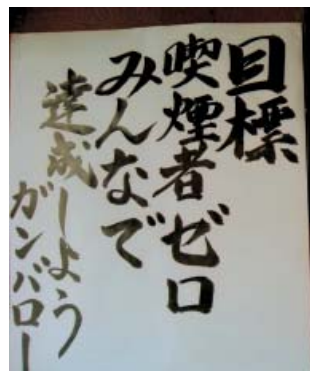 目標
喫煙者ゼロ
みんなで
達成しよう
ガンバロー